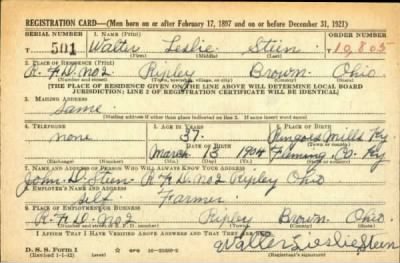 REGISTRATION CARD—(Men born on or after February 17, 1897 and on or before December 31, 1921)
SERIAL NUMBER 1. NAME (Print) ORDER NUMBER
501 Walter Leslie Stein 10,805
(First) (Middle) (Last)
2. PLACE OF RESIDENCE (Print)
R. F. D. no 2 Ripley Brown Ohio
(Number and street) (Town, township, village, or city) (County) (State)
[THE PLACE OF RESIDENCE GIVEN ON THE LINE ABOVE WILL DETERMINE LOCAL BOARD
JURISDICTION; LINE 2 OF REGISTRATION CERTIFICATE WILL BE IDENTICAL]
3. MAILING ADDRESS
Same
[Mailing address if other than place indicated on line 2. If same insert word same]
4. TELEPHONE 5. AGE IN YEARS 6. PLACE OF BIRTH
none 37 Mills Ky
DATE OF BIRTH
March 13 1904 Fleming Co. Ky
(Exchange) (Number) (Mo.) (Day) (Yr.) (State or country)
7. NAME AND ADDRESS OF PERSON WHO WILL ALWAYS KNOW YOUR ADDRESS
John D. Stein R F D. no 2 Ripley Ohio
8. EMPLOYER'S NAME AND ADDRESS
Self Farmer
9. PLACE OF EMPLOYMENT OR BUSINESS
R. F. D. no 2 Ripley Brown Ohio.
(Number and street or R. F. D. number) (Town) (County) (State)
I AFFIRM THAT I HAVE VERIFIED ABOVE ANSWERS AND THAT THEY ARE TRUE.
D. S. S. Form 1
(Revised 1-1-42)
Walter Leslie Stein
(Registrant's signature)